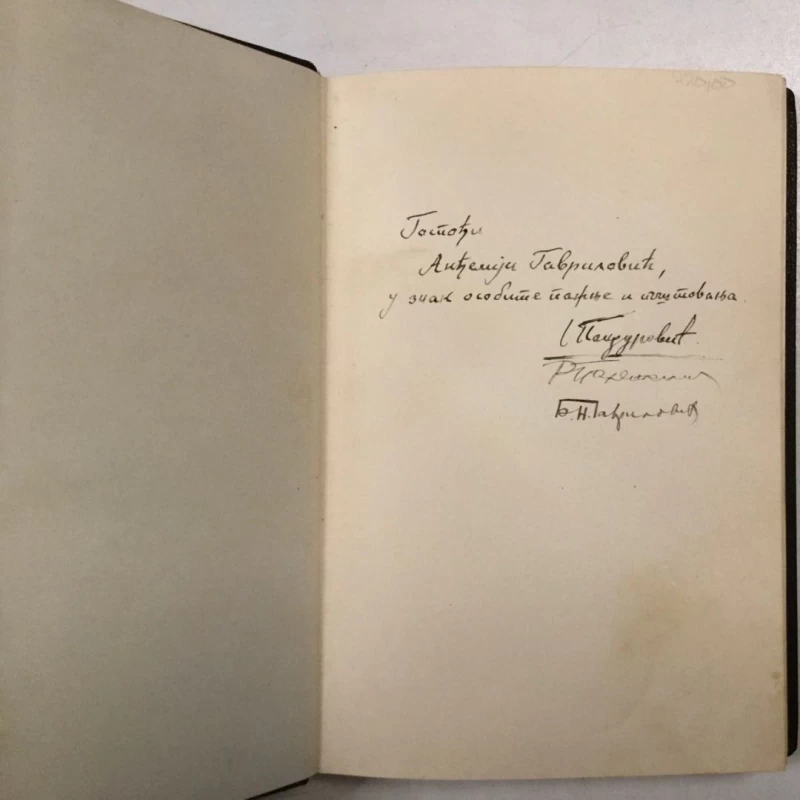 Госпођи
Анђелији Гавриловић,
у знак особите пажње и поштовања.
С Пандуровић
Б.Н.Гавриловић